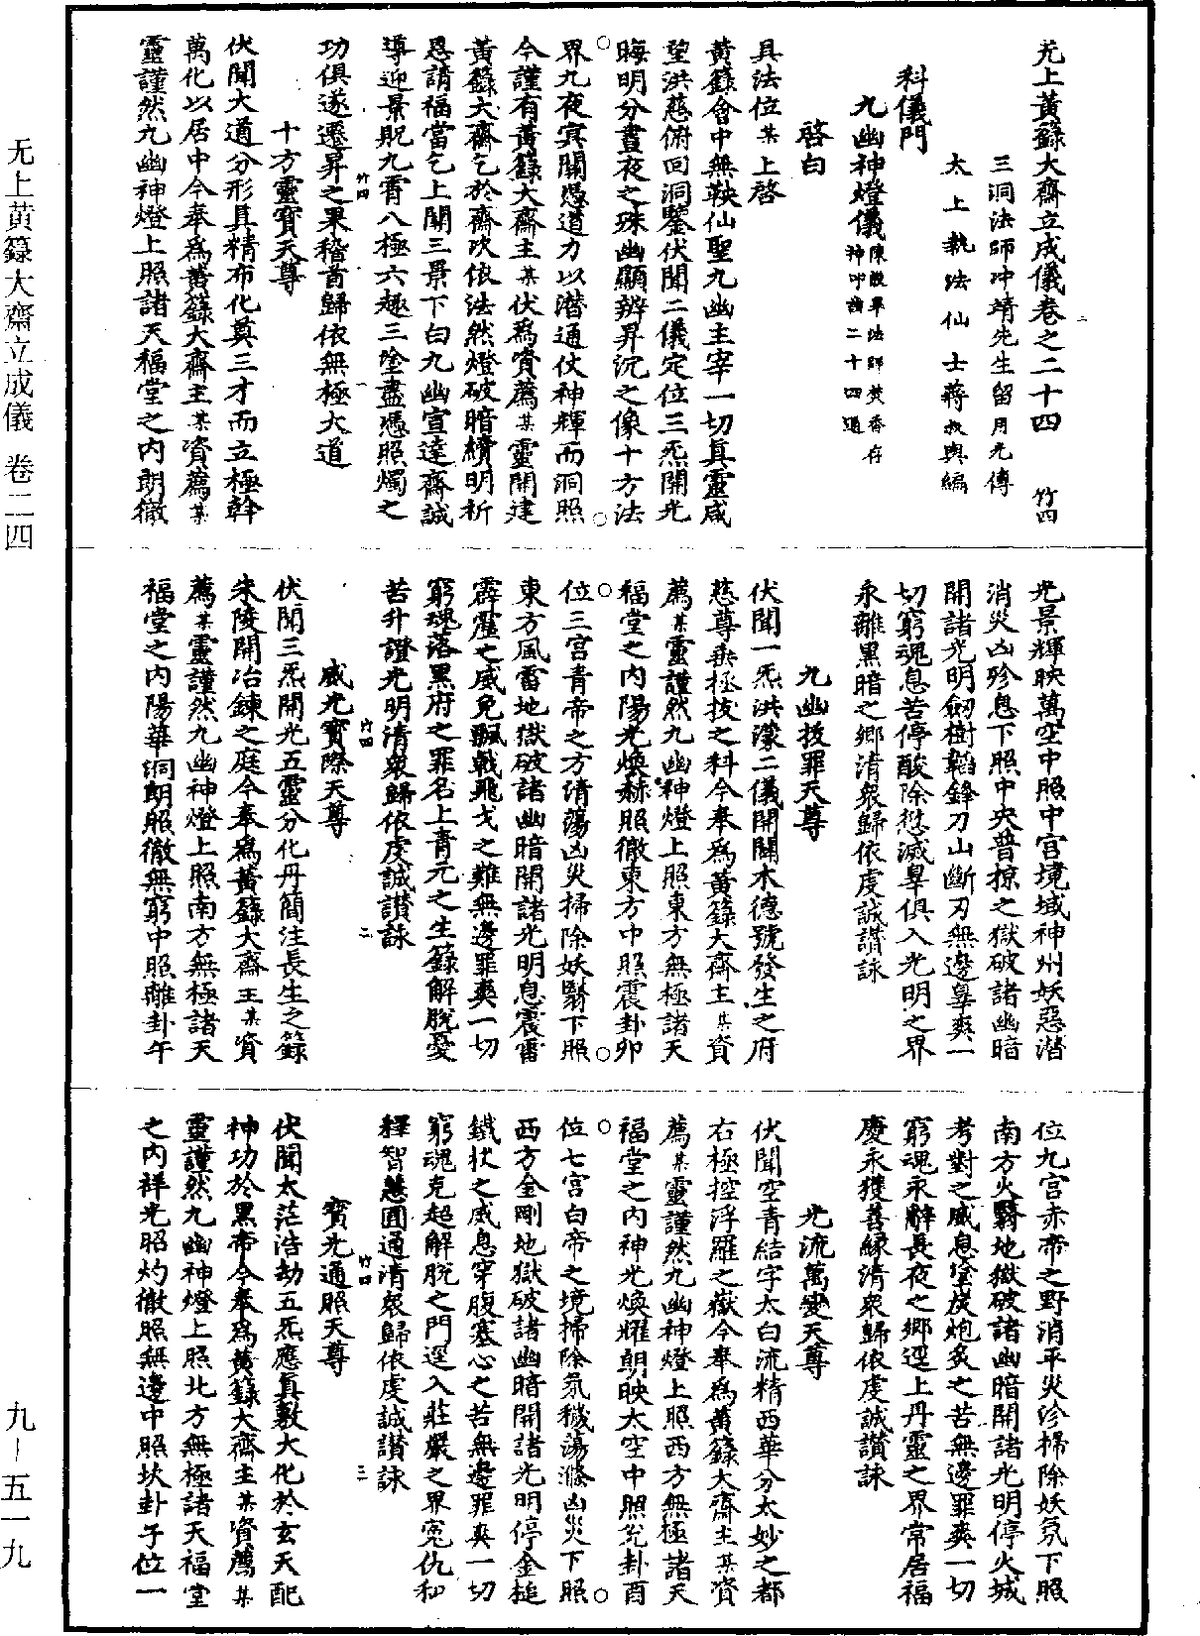 无上黃籙大齋立成儀卷之二十四　竹四
三洞法師沖靖先生留用光傳
太上執法仙士蔣叔輿編
科儀門
九幽神燈儀
啓白
具法位某上啓
黃籙會中無鞅仙聖九幽主宰一切真靈咸
望洪慈俯回洞鑒伏聞二儀定位三炁開光
晦明分晝夜之殊幽顯辨昇沉之像十方法
界九夜冥關憑道力以潛通仗神輝而洞照
今謹有黃籙大齋主某伏為資薦某靈開建
黃籙大齋乞於齋次依法然燈破暗續明祈
恩請福當乞上聞三景下曰九幽宣達齋誠
導迎景貺九霄八極六趣三塗盡憑照燭之
功俱遂遷昇之果稽首歸依無極大道
十方靈寶天尊
伏聞大道分形具精布化奠三才而立極幹
萬化以居中今奉為黃籙大齋主某資薦某
靈謹然九幽神燈上照諸天福堂之內朗徹
光景輝映萬空中照中宮境域神州妖惡潛
消災凶殄息下照中央普掠之獄破諸幽暗
開諸光明劒樹韜鋒刀山斷刃無邊辠爽一
切窮魂息苦停酸除愆滅辠俱入光明之界
永離黑暗之鄉清衆歸依虔誠讚詠
九幽拔罪天尊
伏聞一炁洪濛二儀開闢木德號發生之府
慈尊垂拯拔之科今奉為黃籙大齋主某資
薦某靈謹然九幽神燈上照東方無極諸天
福堂之內陽光煥赫照徹東方中照震卦卯
位三宮青帝之方清蕩凶災掃除妖翳下照
東方風雷地獄破諸幽暗開諸光明息震雷
霹靂之威免飄戟飛戈之難無邊罪爽一切
窮魂落黑府之罪名上青元之生籙解脫憂
苦升證光明清衆歸依虔誠讚詠
威光寶際天尊
伏聞三炁開光五靈分化丹簡注長生之籙
朱陵開冶鍊之庭今奉為黃籙大齋主某資
薦某靈謹然九幽神燈上照南方無極諸天
福堂之內陽華洞朗照徹無窮中照離卦午
位九宮赤帝之野消平災沴掃除妖氛下照
南方火翳地獄破諸幽暗開諸光明停火城
考對之威息塗炭炮炙之苦無邊罪爽一切
窮魂永辭長夜之鄉逕上丹靈之界常居福
慶永獲善緣清衆歸依虔誠讚詠
光流萬變天尊
伏聞空青結字太白流精西華分太妙之都
右極控浮羅之嶽今奉為黃籙大齋主某資
薦某靈謹然九幽神燈上照西方無極諸天
福堂之內神光煥耀朝映太空中照兌卦酉
位七宮白帝之境掃除氛穢蕩滌凶災下照
西方金剛地獄破諸幽暗開諸光明停金槌
鐵杖之威息穿腹塞心之苦無邊罪爽一切
窮魂克超解脫之門逕入莊嚴之界冤仇和
釋智慧圓通清衆歸依虔誠讚詠
寶光通照天尊
伏聞太茫浩劫五炁應真敷大化於玄天配
神功於黑帝今奉為黃籙大齋主某資薦某
靈謹然九幽神燈上照北方無極諸天福堂
之內祥光昭灼徹照無邊中照坎卦子位一
无上黄籙大齋立成儀　卷二四
九－五一九